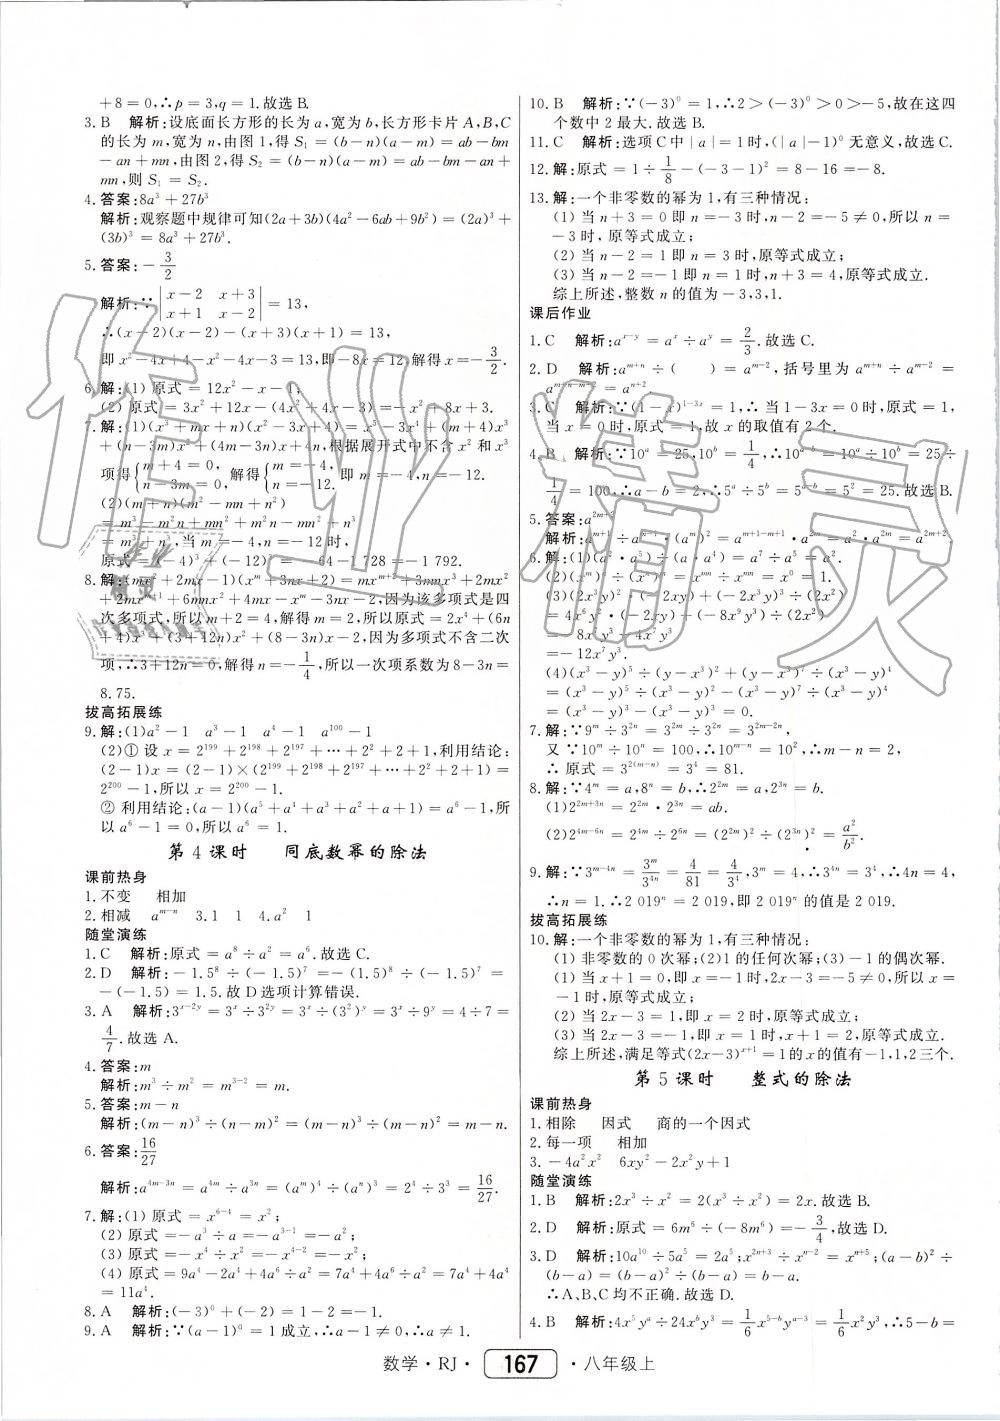 +8=0,∴p=3,q=1.故选B.
3. B 解析:设底面长方形的长为a,宽为b,长方形卡片A,B,C
的长为m,宽为n,由图1,得S₁=(b-n)(a-m)=ab-bm
-an+mn,由图2,得S₂=(b-n)(a-m)=ab-bm-an+
mn,则S₁=S₂.
4. 答案:8a³+27b³
解析:观察题中规律可知(2a+3b)(4a²-6ab+9b²)=(2a)³+
(3b)³=8a³+27b³.
5. 答案:-3/2
解析:∵|x-2 x+3|
|x+1 x-2|=13,
∴(x-2)(x-2)-(x+3)(x+1)=13,
即x²-4x+4-x²-4x-3=13,即-8x=12,解得x=-3/2.
6. 解:(1)原式=12x²-x-1;
(2)原式=3x²+12x-(4x²+4x-3)=-x²+8x+3.
7. 解:(1)(x³+mx+n)(x²-3x+4)=x⁵-3x⁴+(m+4)x³
+(n-3m)x²+(4m-3n)x+4n,根据展开式中不含x²和x³
项得{m+4=0, n-3m=0.解得{m=-4, n=-12.即m=-4,n=-12;
(2)(m+n)(m²-mn+n²)
=m³-m²n+mn²+m²n-mn²+n³
=m³+n³,当m=-4,n=-12时,
原式=(-4)³+(-12)³=-64-1 728=-1 792.
8. 解:(mx²+2mx-1)(xᵐ+3nx+2)=mxᵐ⁺²+3mnx³+2mx²
+2mxᵐ⁺¹+6mnx²+4mx-xᵐ-3nx-2,因为该多项式是四
次多项式,所以m+2=4,解得m=2,所以原式=2x⁴+(6n
+4)x³+(3+12n)x²+(8-3n)x-2,因为多项式不含二次
项,∴3+12n=0,解得n=-1/4,所以一次项系数为8-3n=
8.75.
拔高拓展练
9. 解:(1)a²-1 a³-1 a⁴-1 a¹⁰⁰-1
(2)① 设x=2¹⁹⁹+2¹⁹⁸+2¹⁹⁷+…+2²+2+1,利用结论:
(2-1)x=(2-1)×(2¹⁹⁹+2¹⁹⁸+2¹⁹⁷+…+2²+2+1)=
2²⁰⁰-1,所以x=2²⁰⁰-1.
② 利用结论:(a-1)(a⁵+a⁴+a³+a²+a+1)=a⁶-1,所
以a⁶-1=0,所以a⁶=1.
第4课时 同底数幂的除法
课前热身
1. 不变 相加
2. 相减 aᵐ⁻ⁿ 3. 1 1 4. a² 1
随堂演练
1. C 解析:原式=a⁸÷a²=a⁶.故选C.
2. D 解析:-1.5⁸÷(-1.5)⁷=(-1.5)⁸÷(-1.5)⁷=
-(-1.5)=1.5.故D选项计算错误.
3. A 解析:3ˣ⁻²ʸ=3ˣ÷3²ʸ=3ˣ÷(3²)ʸ=3ˣ÷9ʸ=4÷7=
4/7.故选A.
4. 答案:m
解析:m³÷m²=m³⁻²=m.
5. 答案:m-n
解析:(m-n)³÷(n-m)²=(m-n)³÷(m-n)²=m-n.
6. 答案:16/27
解析:a⁴ᵐ⁻³ⁿ=a⁴ᵐ÷a³ⁿ=(aᵐ)⁴÷(aⁿ)³=2⁴÷3³=16/27.
7. 解:(1)原式=x⁶⁻⁴=x²;
(2)原式=-a³÷a=-a³⁻¹=-a²;
(3)原式=-x⁴÷x²=-x⁴⁻²=-x²;
(4)原式=9a⁴-2a⁴+4a⁶÷a²=7a⁴+4a⁶÷a²=7a⁴+4a⁴
=11a⁴.
8. A 解析:(-3)⁰+(-2)=1-2=-1.
9. A 解析:∵(a-1)⁰=1成立,∴a-1≠0,∴a≠1.
10. B 解析:∵(-3)⁰=1,∴2>(-3)⁰>0>-5,故在这四
个数中2最大.故选B.
11. C 解析:选项C中|a|=1时,(|a|-1)⁰无意义,故选C.
12. 解:原式=1÷1/8-(-3-1)²=8-16=-8.
13. 解:一个非零数的幂为1,有三种情况:
(1)当n+3=0即n=-3时,n-2=-5≠0,所以n=
-3时,原等式成立;
(2)当n-2=1即n=3时,原等式成立;
(3)当n-2=-1即n=1时,n+3=4,原等式成立.
综上所述,整数n的值为-3,3,1.
课后作业
1. C 解析:aˣ⁻ʸ=aˣ÷aʸ=2/3.故选C.
2. D 解析:aᵐ⁺ⁿ÷( )=aᵐ⁻²,括号里为aᵐ⁺ⁿ÷aᵐ⁻²=
aᵐ⁺ⁿ⁻ᵐ⁺²=aⁿ⁺².
3. C 解析:∵(1-x)¹⁻³ˣ=1,∴当1-3x=0时,原式=1,
当x=0时,原式=1,故x的取值有2个.
4. B 解析:∵10ᵃ=25,10ᵇ=1/4,∴10ᵃ⁻ᵇ=10ᵃ÷10ᵇ=25÷
1/4=100,∴a-b=2,∴5ᵃ÷5ᵇ=5ᵃ⁻ᵇ=5²=25.故选B.
5. 答案:a²ᵐ⁺²
解析:aᵐ⁺¹÷aᵐ⁻¹·(aᵐ)²=aᵐ⁺¹⁻ᵐ⁺¹·a²ᵐ=a²·a²ᵐ=a²ᵐ⁺²
6. 解:(1)(a²·a⁵)÷(a·a⁴)=a⁷÷a⁵=a².
(3)(2x³y)²·(-2xy)+(-2x³y)³÷(2x²)
=4x⁶y²·(-2xy)+(-8x⁹y³)÷(2x²)
=-8x⁷y³-4x⁷y³
=-12x⁷y³.
(4)(x³-y)⁵÷(y-x³)²+(y-x³)⁷÷(x³-y)⁴
=(x³-y)⁵÷(x³-y)²-(x³-y)⁷÷(x³-y)⁴
=(x³-y)³-(x³-y)³=0.
7. 解:∵9ᵐ÷3²ⁿ=3²ᵐ÷3²ⁿ=3²ᵐ⁻²ⁿ,
又∵10ᵐ÷10ⁿ=100,∴10ᵐ⁻ⁿ=10²,∴m-n=2,
∴原式=3²⁽ᵐ⁻ⁿ⁾=3⁴=81.
8. 解:∵4ᵐ=a,8ⁿ=b,∴2²ᵐ=a,2³ⁿ=b.
(1)2²ᵐ⁺³ⁿ=2²ᵐ·2³ⁿ=ab.
(2)2⁴ᵐ⁻⁶ⁿ=2⁴ᵐ÷2⁶ⁿ=(2²ᵐ)²÷(2³ⁿ)²=a²/b².
9. 解:∵3ᵐ⁻⁴ⁿ=3ᵐ/3⁴ⁿ=4/81=4/3⁴,3ᵐ=4,∴3⁴ⁿ=3⁴,∴4n=4,
∴n=1.∴2 019ⁿ=2 019,即2 019ⁿ的值是2 019.
拔高拓展练
10. 解:一个非零数的幂为1,有三种情况:
(1)非零数的0次幂;(2)1的任何次幂;(3)-1的偶次幂.
(1)当x+1=0,即x=-1时,2x-3=-5≠0,所以x=
-1时,原等式成立;
(2)当2x-3=1,即x=2时,原等式成立;
(3)当2x-3=-1,即x=1时,x+1=2,原等式成立.
综上所述,满足等式(2x-3)ˣ⁺¹=1的x的值有-1,1,2三个.
第5课时 整式的除法
课前热身
1. 相除 因式 商的一个因式
2. 每一项 相加
3. -4a²x² 6xy²-2x²y+1
随堂演练
1. B 解析:2x³÷x²=2(x³÷x²)=2x.故选B.
2. D 解析:原式=6m⁶÷(-8m⁶)=-3/4,故选D.
3. D 解析:10a¹⁰÷5a⁵=2a⁵;x²ⁿ⁺³÷xⁿ⁻²=xⁿ⁺⁵;(a-b)²÷
(b-a)=(b-a)²÷(b-a)=b-a.
∴A、B、C均不正确.故选D.
4. B 解析:4x⁵yᵃ÷24xᵇy³=1/6x⁵⁻ᵇyᵃ⁻³=1/6x²y²,∴5-b=
数学·RJ· 167 ·八年级上
作业精灵